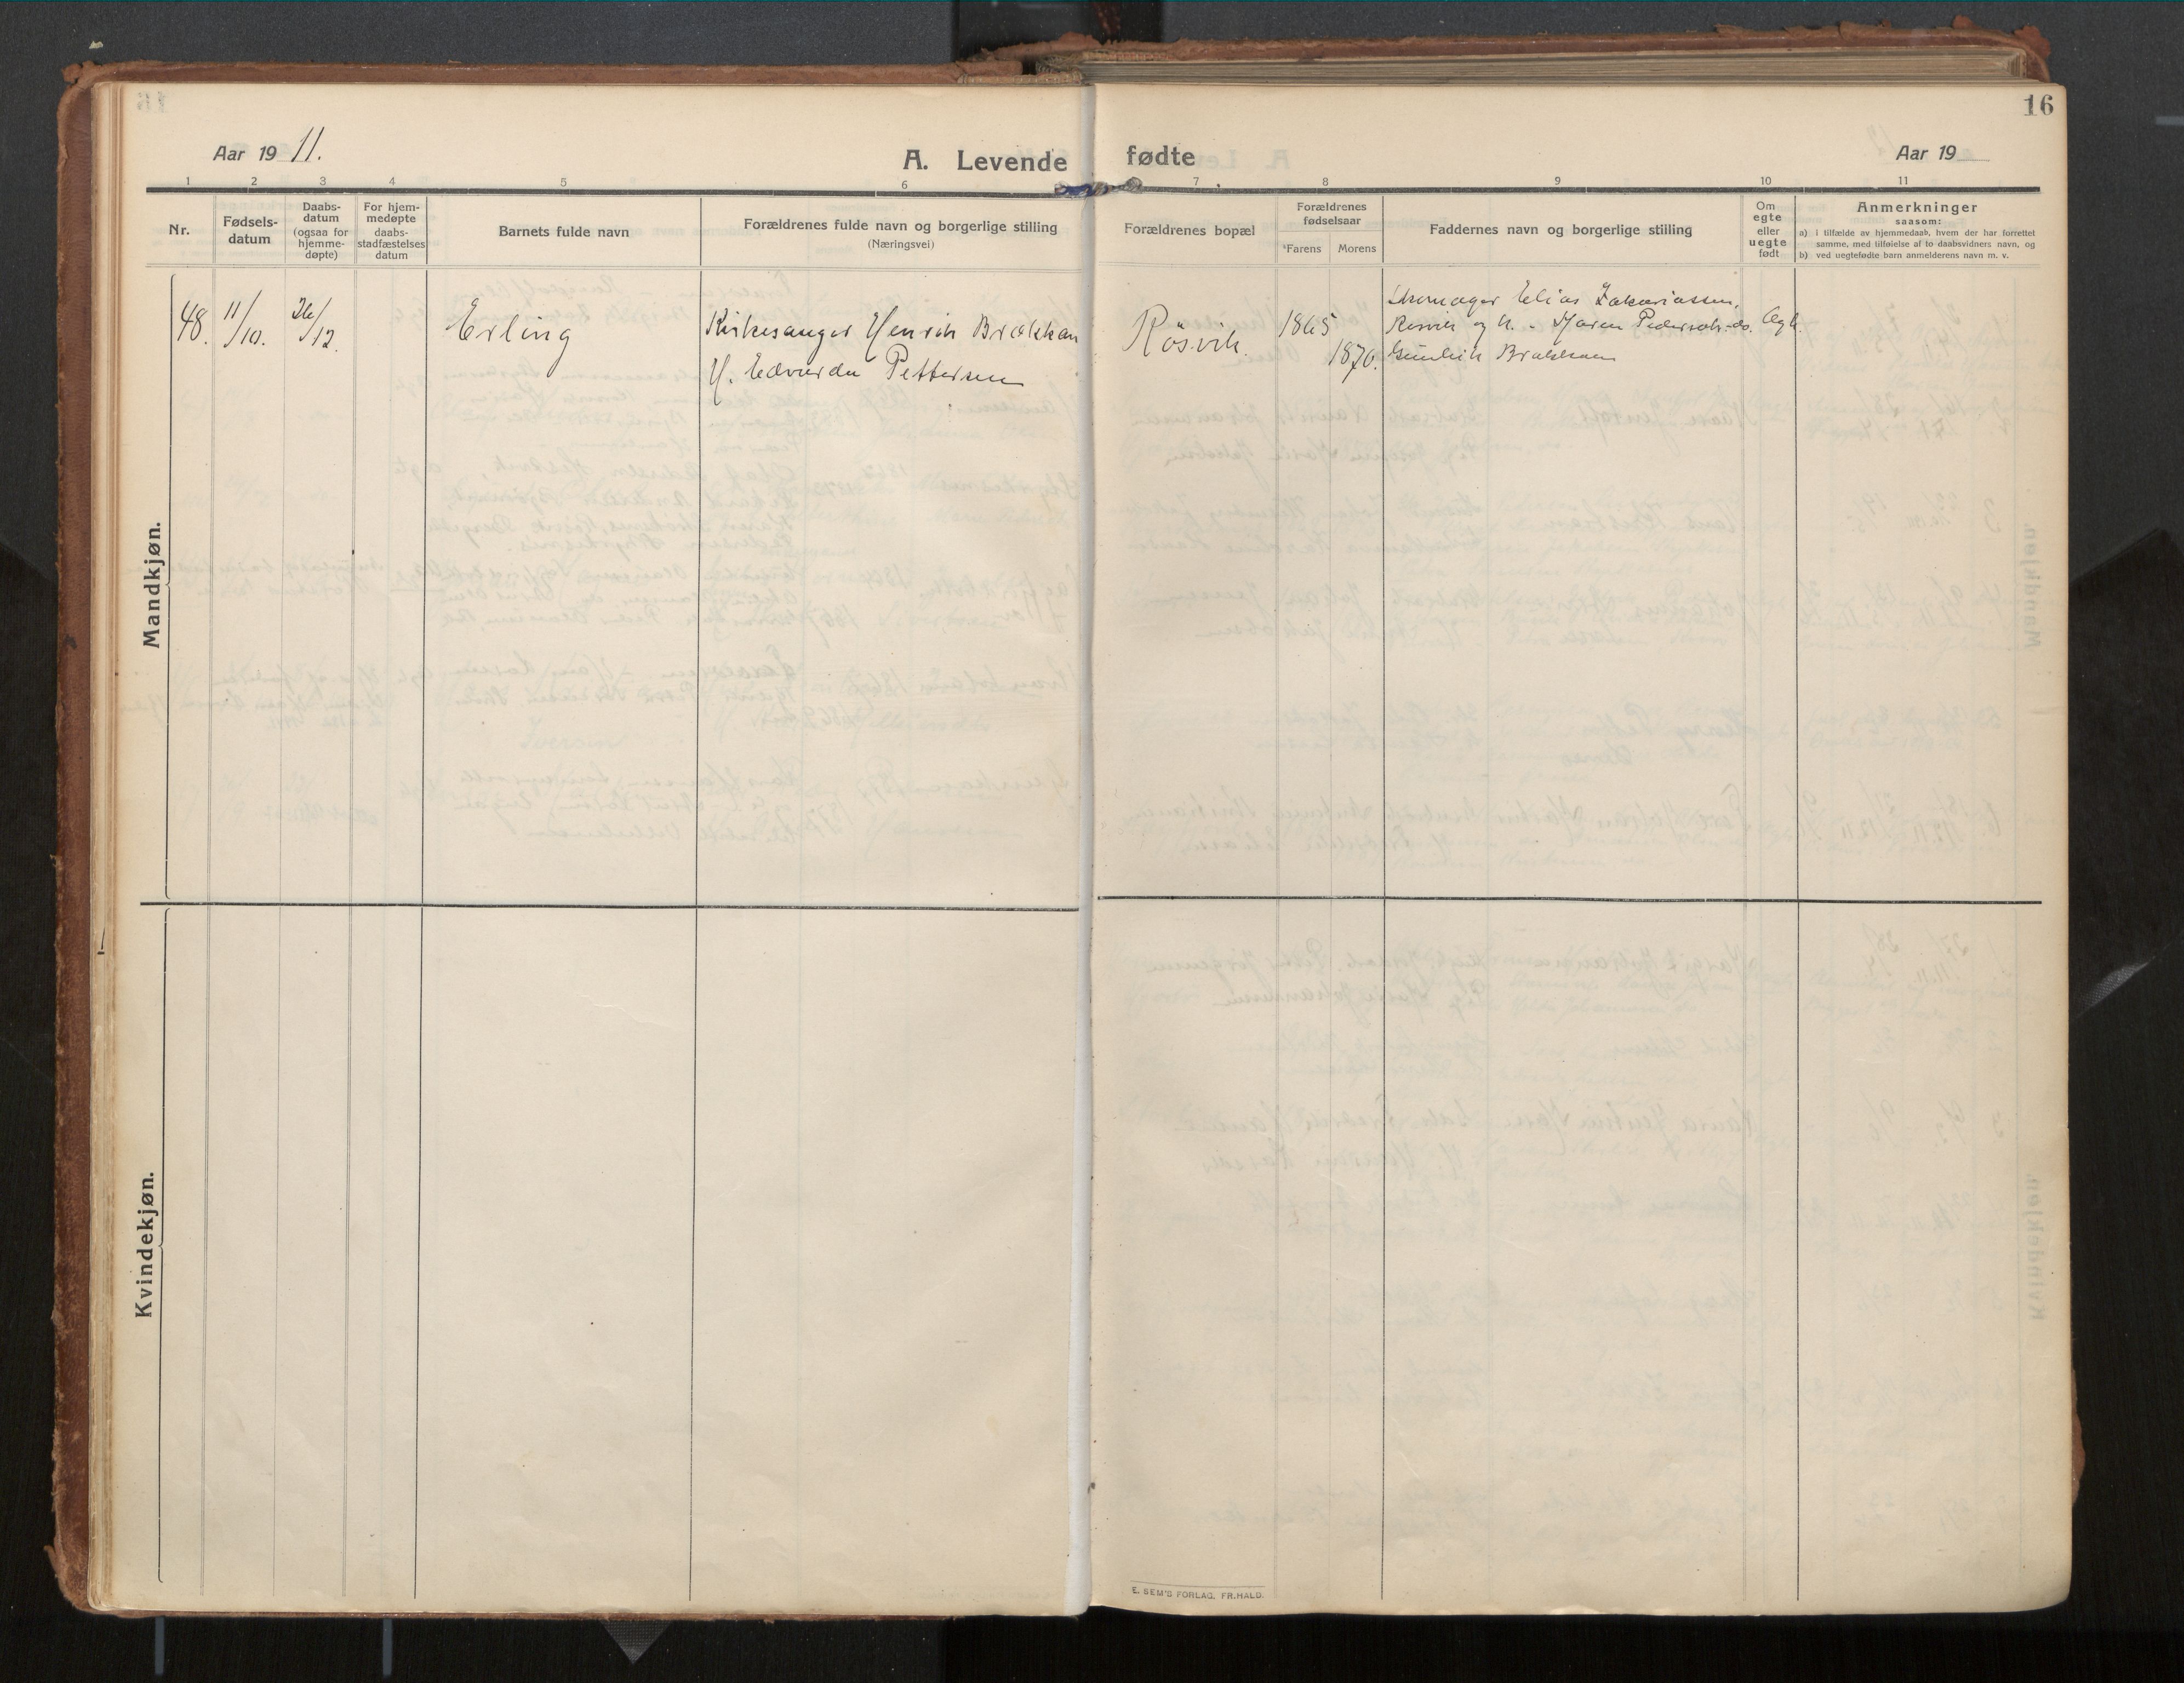 16
Aar 19 11.
A. Levende fødte
Aar 19
1 2 3 4 5 6 7 8 9 10 11
Nr.
Fødsels-
datum
Daabs-
datum
(ogsaa for
hjemme-
døpte)
For hjem-
medøpte
daabs-
stadfæstelses
datum
Barnets fulde navn
Forældrenes fulde navn og borgerlige stilling
(Næringsvei)
Forældrenes bopæl
Forældrenes
fødselsaar
Farens Morens
Faddernes navn og borgerlige stilling
Om
egte
eller
uegte
født
Anmerkninger
saasom:
a) i tilfælde av hjemmedaab, hvem der har forrettet
samme, med tilføielse af to daabsvidners navn, og
b) ved uegtefødte barn anmelderens navn m. v.
Mandkjøn.
48. 11/10. 26/12. Erling
Kirkesanger Henrik Brækkan
H. Edvarda Pettersen
Rösvik.
1865
1870.
Skomager Elias Zakariassen,
Røsvik og h. Maren Pedersen do.
Brækkan
Egte.
Kvindekjøn.
E. SEM'S FORLAG. FR.HALD.